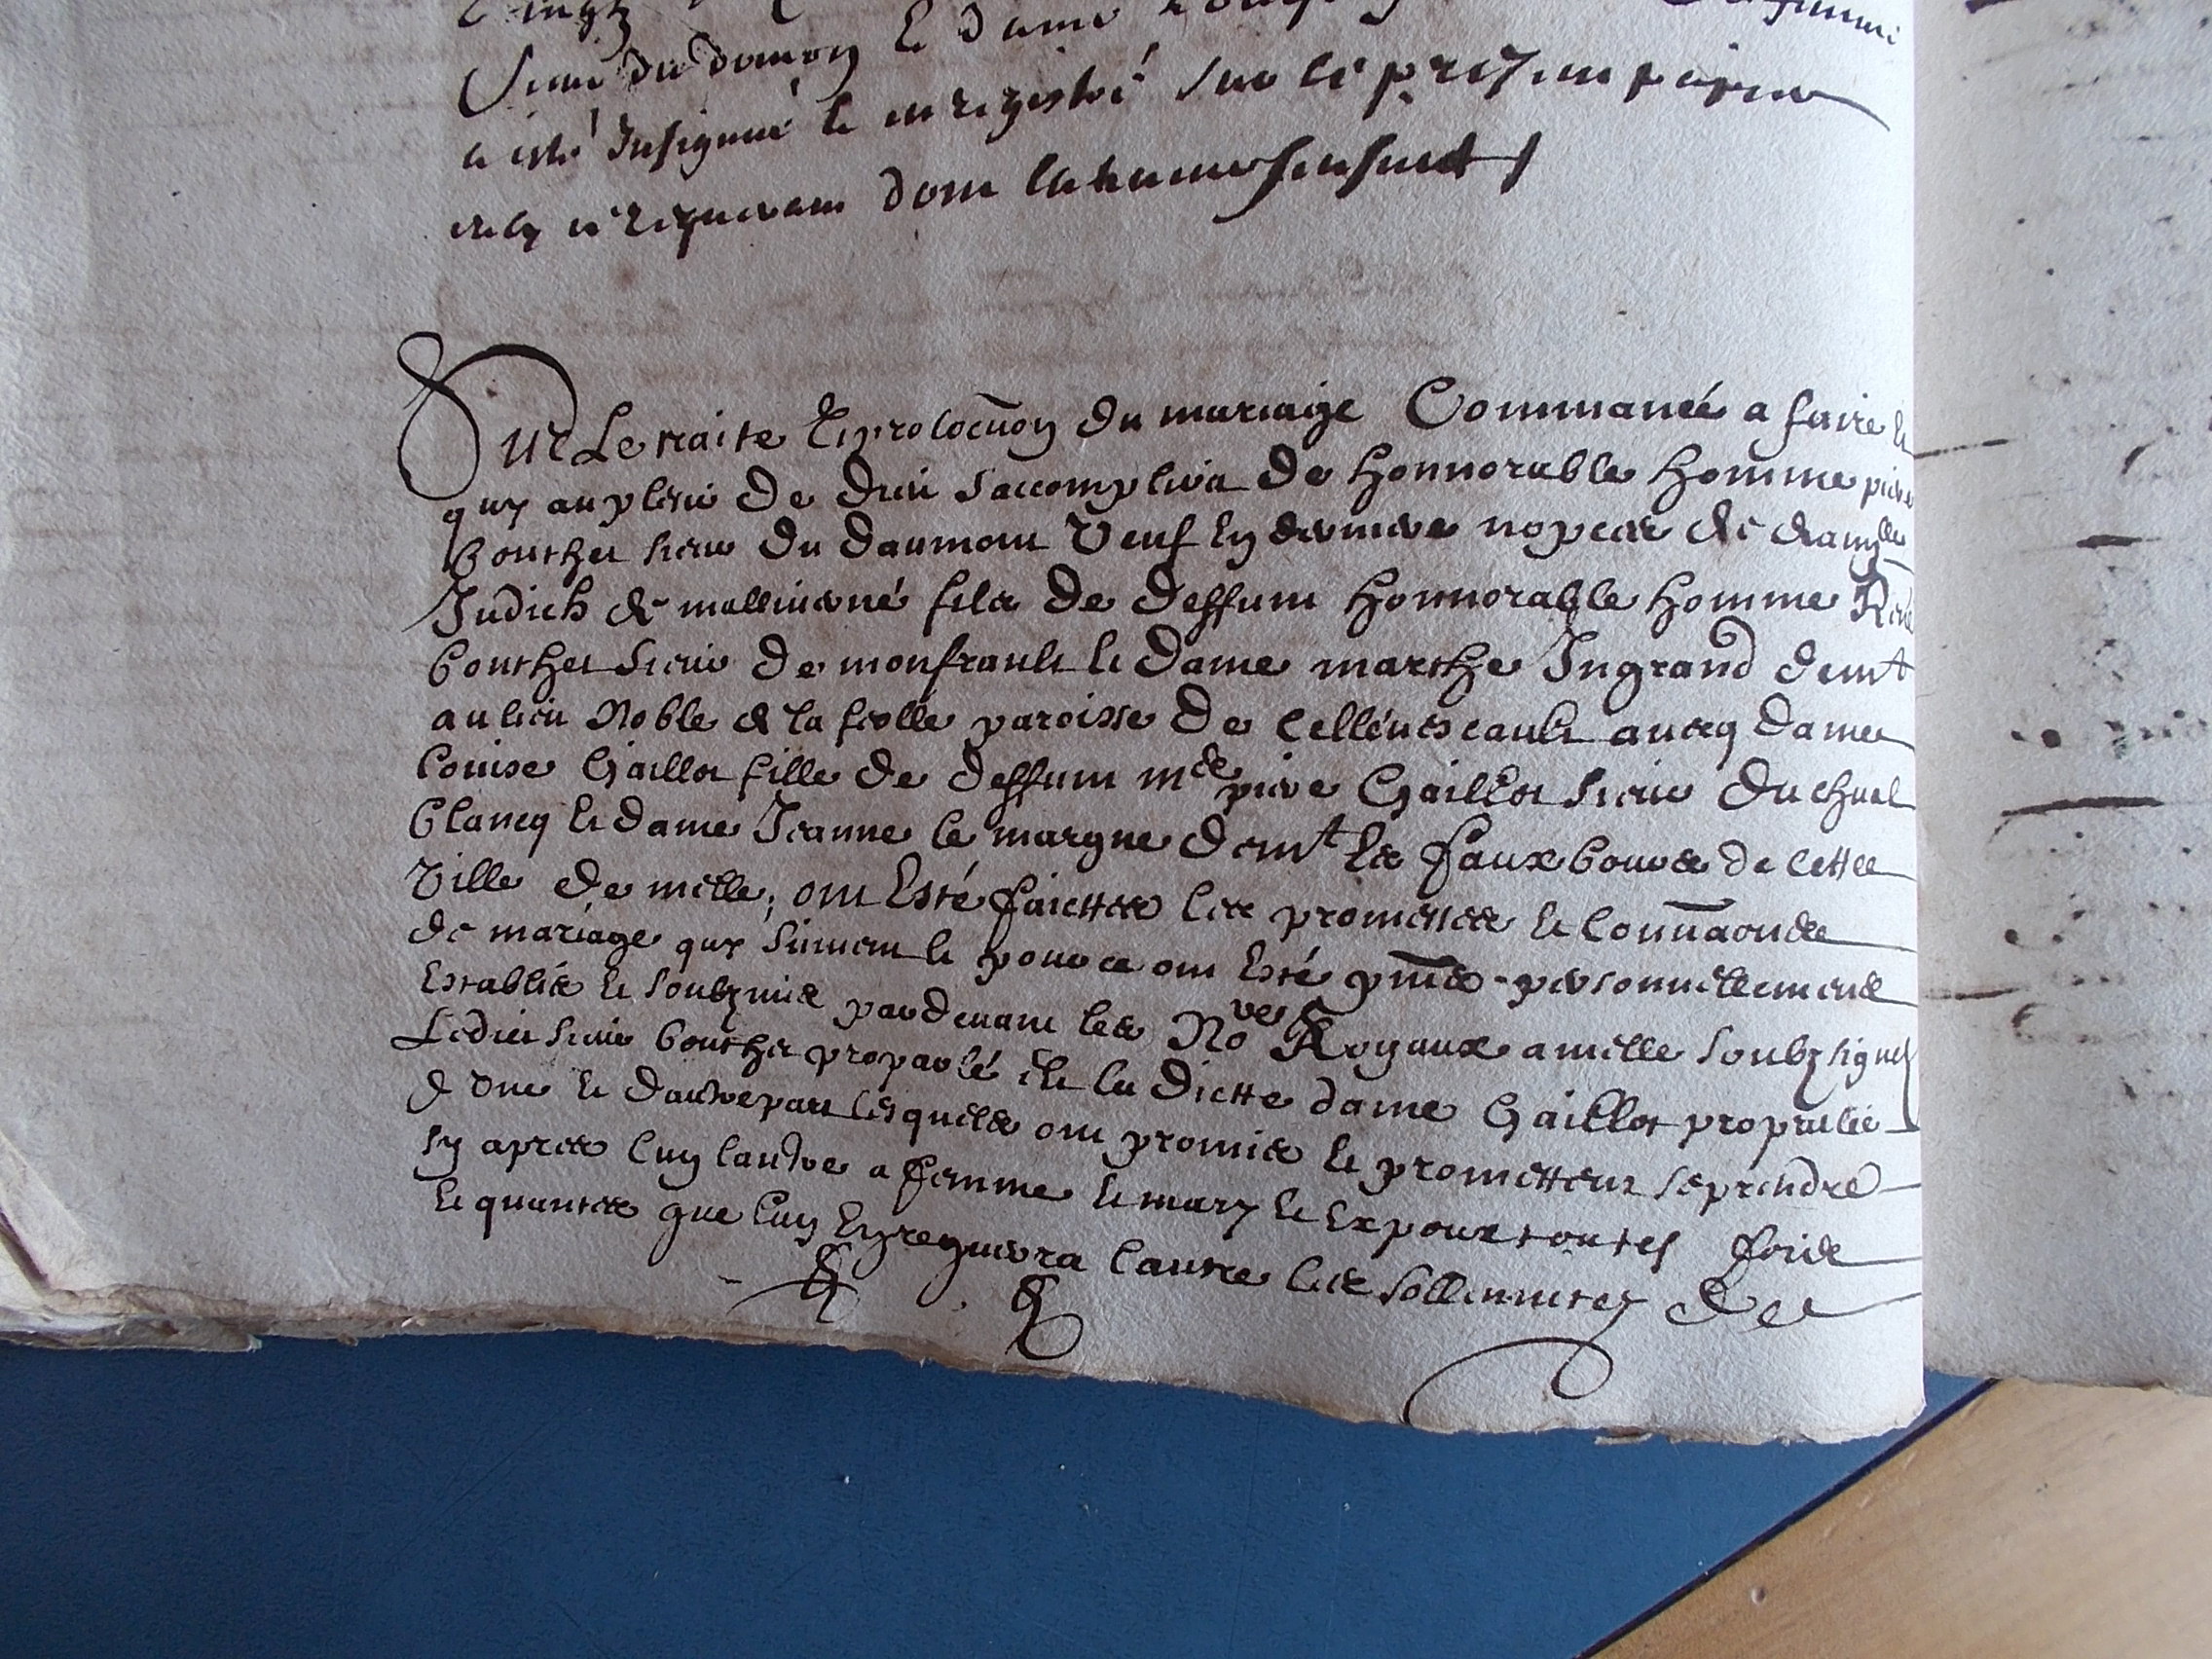 sieur du Domon et dame
a esté Insignué et enregistré sur le present papier
icely ce requerant dont la teneur sensuict
Sur Le traite Et prolocution du mariaige Commancé a faire et
quy au plesir de dieu saccomplira de Honnorable Homme pierre
bouthet sieur du daumont Veuf En dernière nopces de damlle
Judich de mallinerné fils de deffunt Honnorable Homme René
bouthet sieur de monfrault et Dame marthe Ingrand demt
au lieu Noble de la fiolle paroisse de Cellévescault auecq dame
Louise Gaillot fille de deffunt me piere Gaillot sieur du chval
blancq et dame Jeanne le margne demt Es faux bours de cette
Ville de melle, ont Esté faicttes les promesses et Connãonces
de mariage quy suivent et pour ce ont Esté pñts personnellement
Establis et soubzmis pardevant les Nores Royaux a melle soubzsignés
Ledict sieur bouthet proparlé et la dictte dame Gaillot proparlée
d'une et dautre part lesquels ont promis et promettent se prendre
sy apres l'un lautre a femme et mary et Expoux toutes fois
et quantes que l'un En requerra lautre les sollennites de